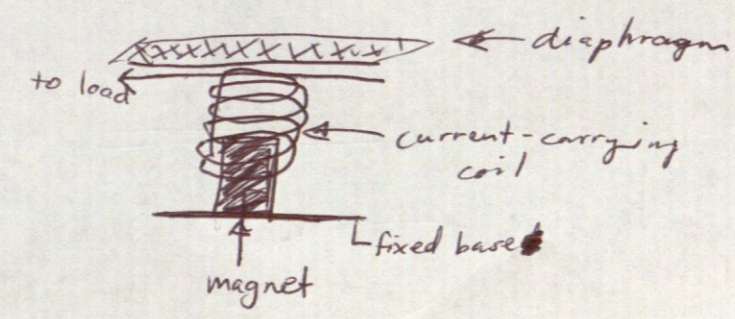 diaphragm
to load
current-carrying
coil
fixed base
magnet